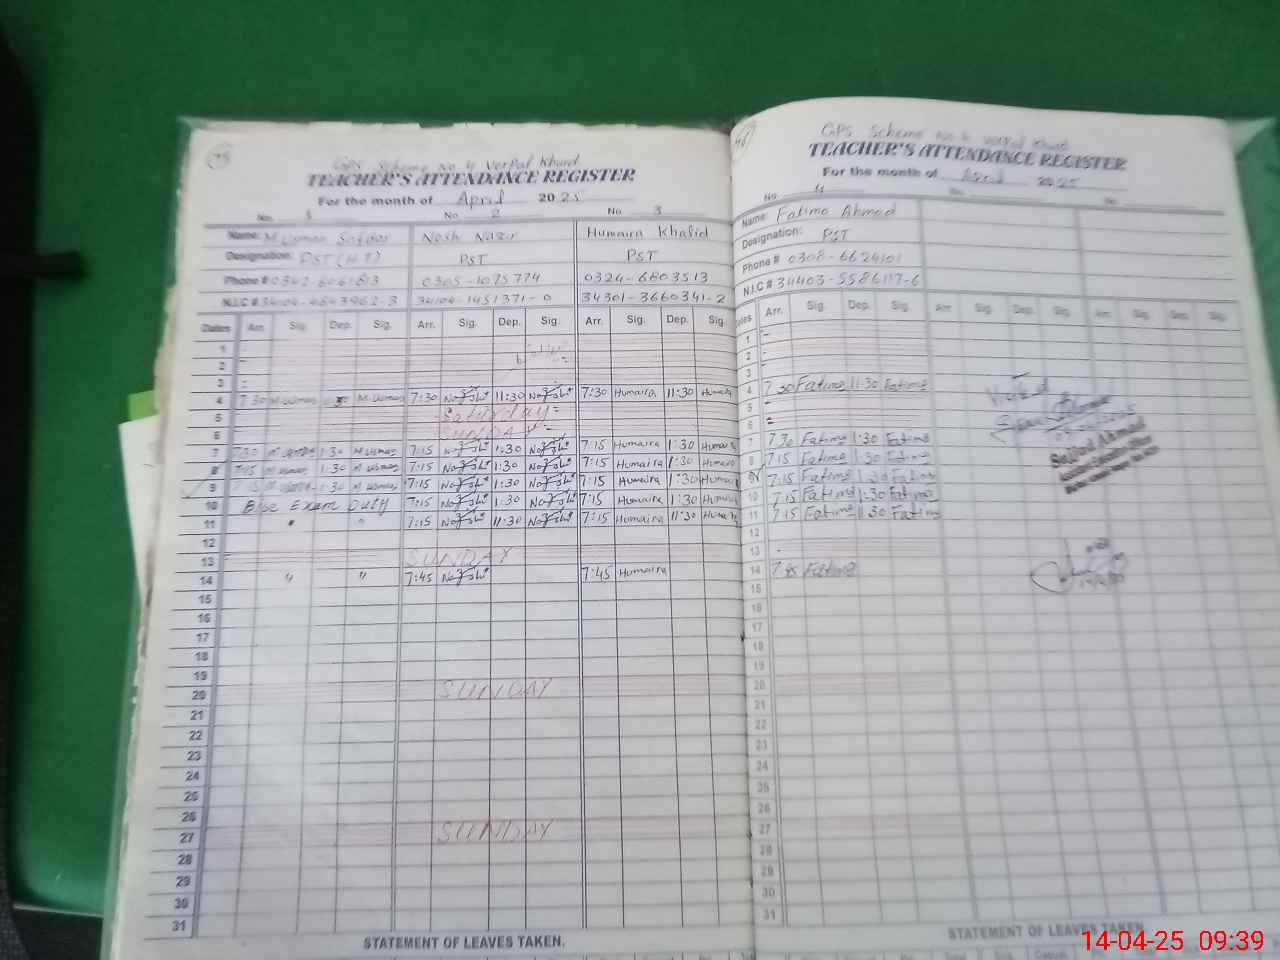 GPS Scheme No 4 Verpal Khurd
TEACHER'S ATTENDANCE REGISTER
For the month of April 2025
No. 1 No. 2 No. 3
Name: M Usman Safdar Noshi Nazir Humaira Khalid
Designation: PST (H.T) PST PST
Phone # 0342-6061813 0305-1075774 0324-6803513
N.I.C # 34104-4643962-3 34104-1451371-0 34301-3660341-2
Dates Arr. Sig. Dep. Sig. Arr. Sig. Dep. Sig. Arr. Sig. Dep. Sig.
1
2
3
4 7:30 M Usman M Usman 7:30 11:30 7:30 Humaira 11:30 Humaira
5 Saturday
6 SUNDAY
7 7:30 M Usman 1:30 M Usman 7:15 1:30 7:15 Humaira 1:30 Humaira
8 7:15 M Usman 1:30 M Usman 7:15 1:30 7:15 Humaira 1:30 Humaira
9 7:15 M Usman 1:30 M Usman 7:15 1:30 7:15 Humaira 1:30 Humaira
10 Exam Duty 7:15 1:30 7:15 Humaira 1:30 Humaira
11 " " 7:15 11:30 7:15 Humaira 11:30 Humaira
12
13 SUNDAY
14 " " 7:45 7:45 Humaira
15
16
17
18
19
20 SUNDAY
21
22
23
24
25
26
27 SUNDAY
28
29
30
31
STATEMENT OF LEAVES TAKEN.
GPS Scheme No 4 Verpal Khurd
TEACHER'S ATTENDANCE REGISTER
For the month of April 2025
No. 4 No. No.
Name: Fatima Ahmed
Designation: PST
Phone # 0308-6624101
N.I.C # 34403-5586117-6
Dates Arr. Sig. Dep. Sig. Arr. Sig. Dep. Sig. Arr. Sig. Dep. Sig.
1
2
3
4 7:30 Fatima 11:30 Fatima
5
6
7 7:30 Fatima 1:30 Fatima
8 7:15 Fatima 1:30 Fatima
9 7:15 Fatima 1:30 Fatima
10 7:15 Fatima 1:30 Fatima
11 7:15 Fatima 11:30 Fatima
12
13
14 7:45 Fatima
15
16
17
18
19
20
21
22
23
24
25
26
27
28
29
30
31
Visited
Sajjad Ahmad
STATEMENT OF LEAVES TAKEN
14-04-25 09:39